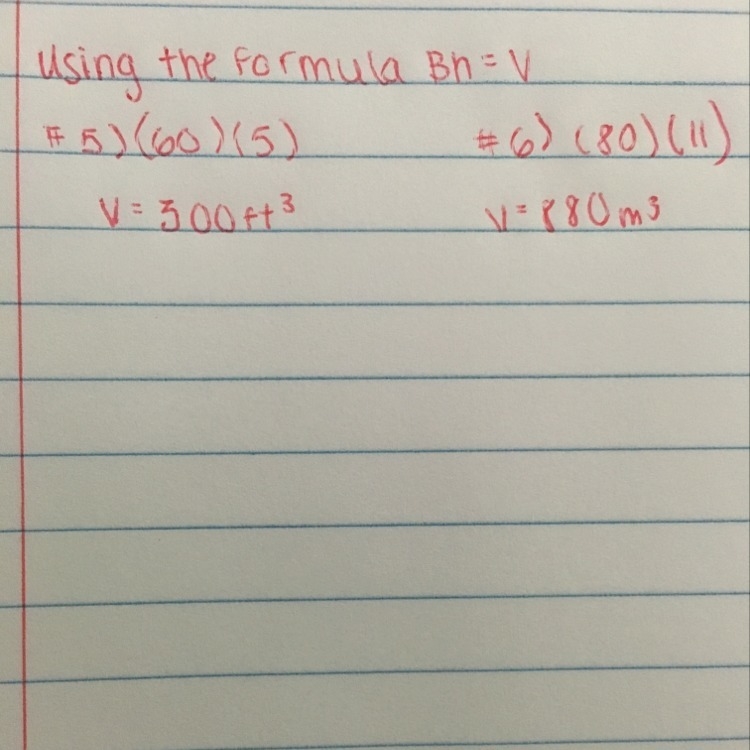 Using the formula Bh = V
#5) (60)(5) #6) (80)(11)
V = 300 ft³ V = 880 m³